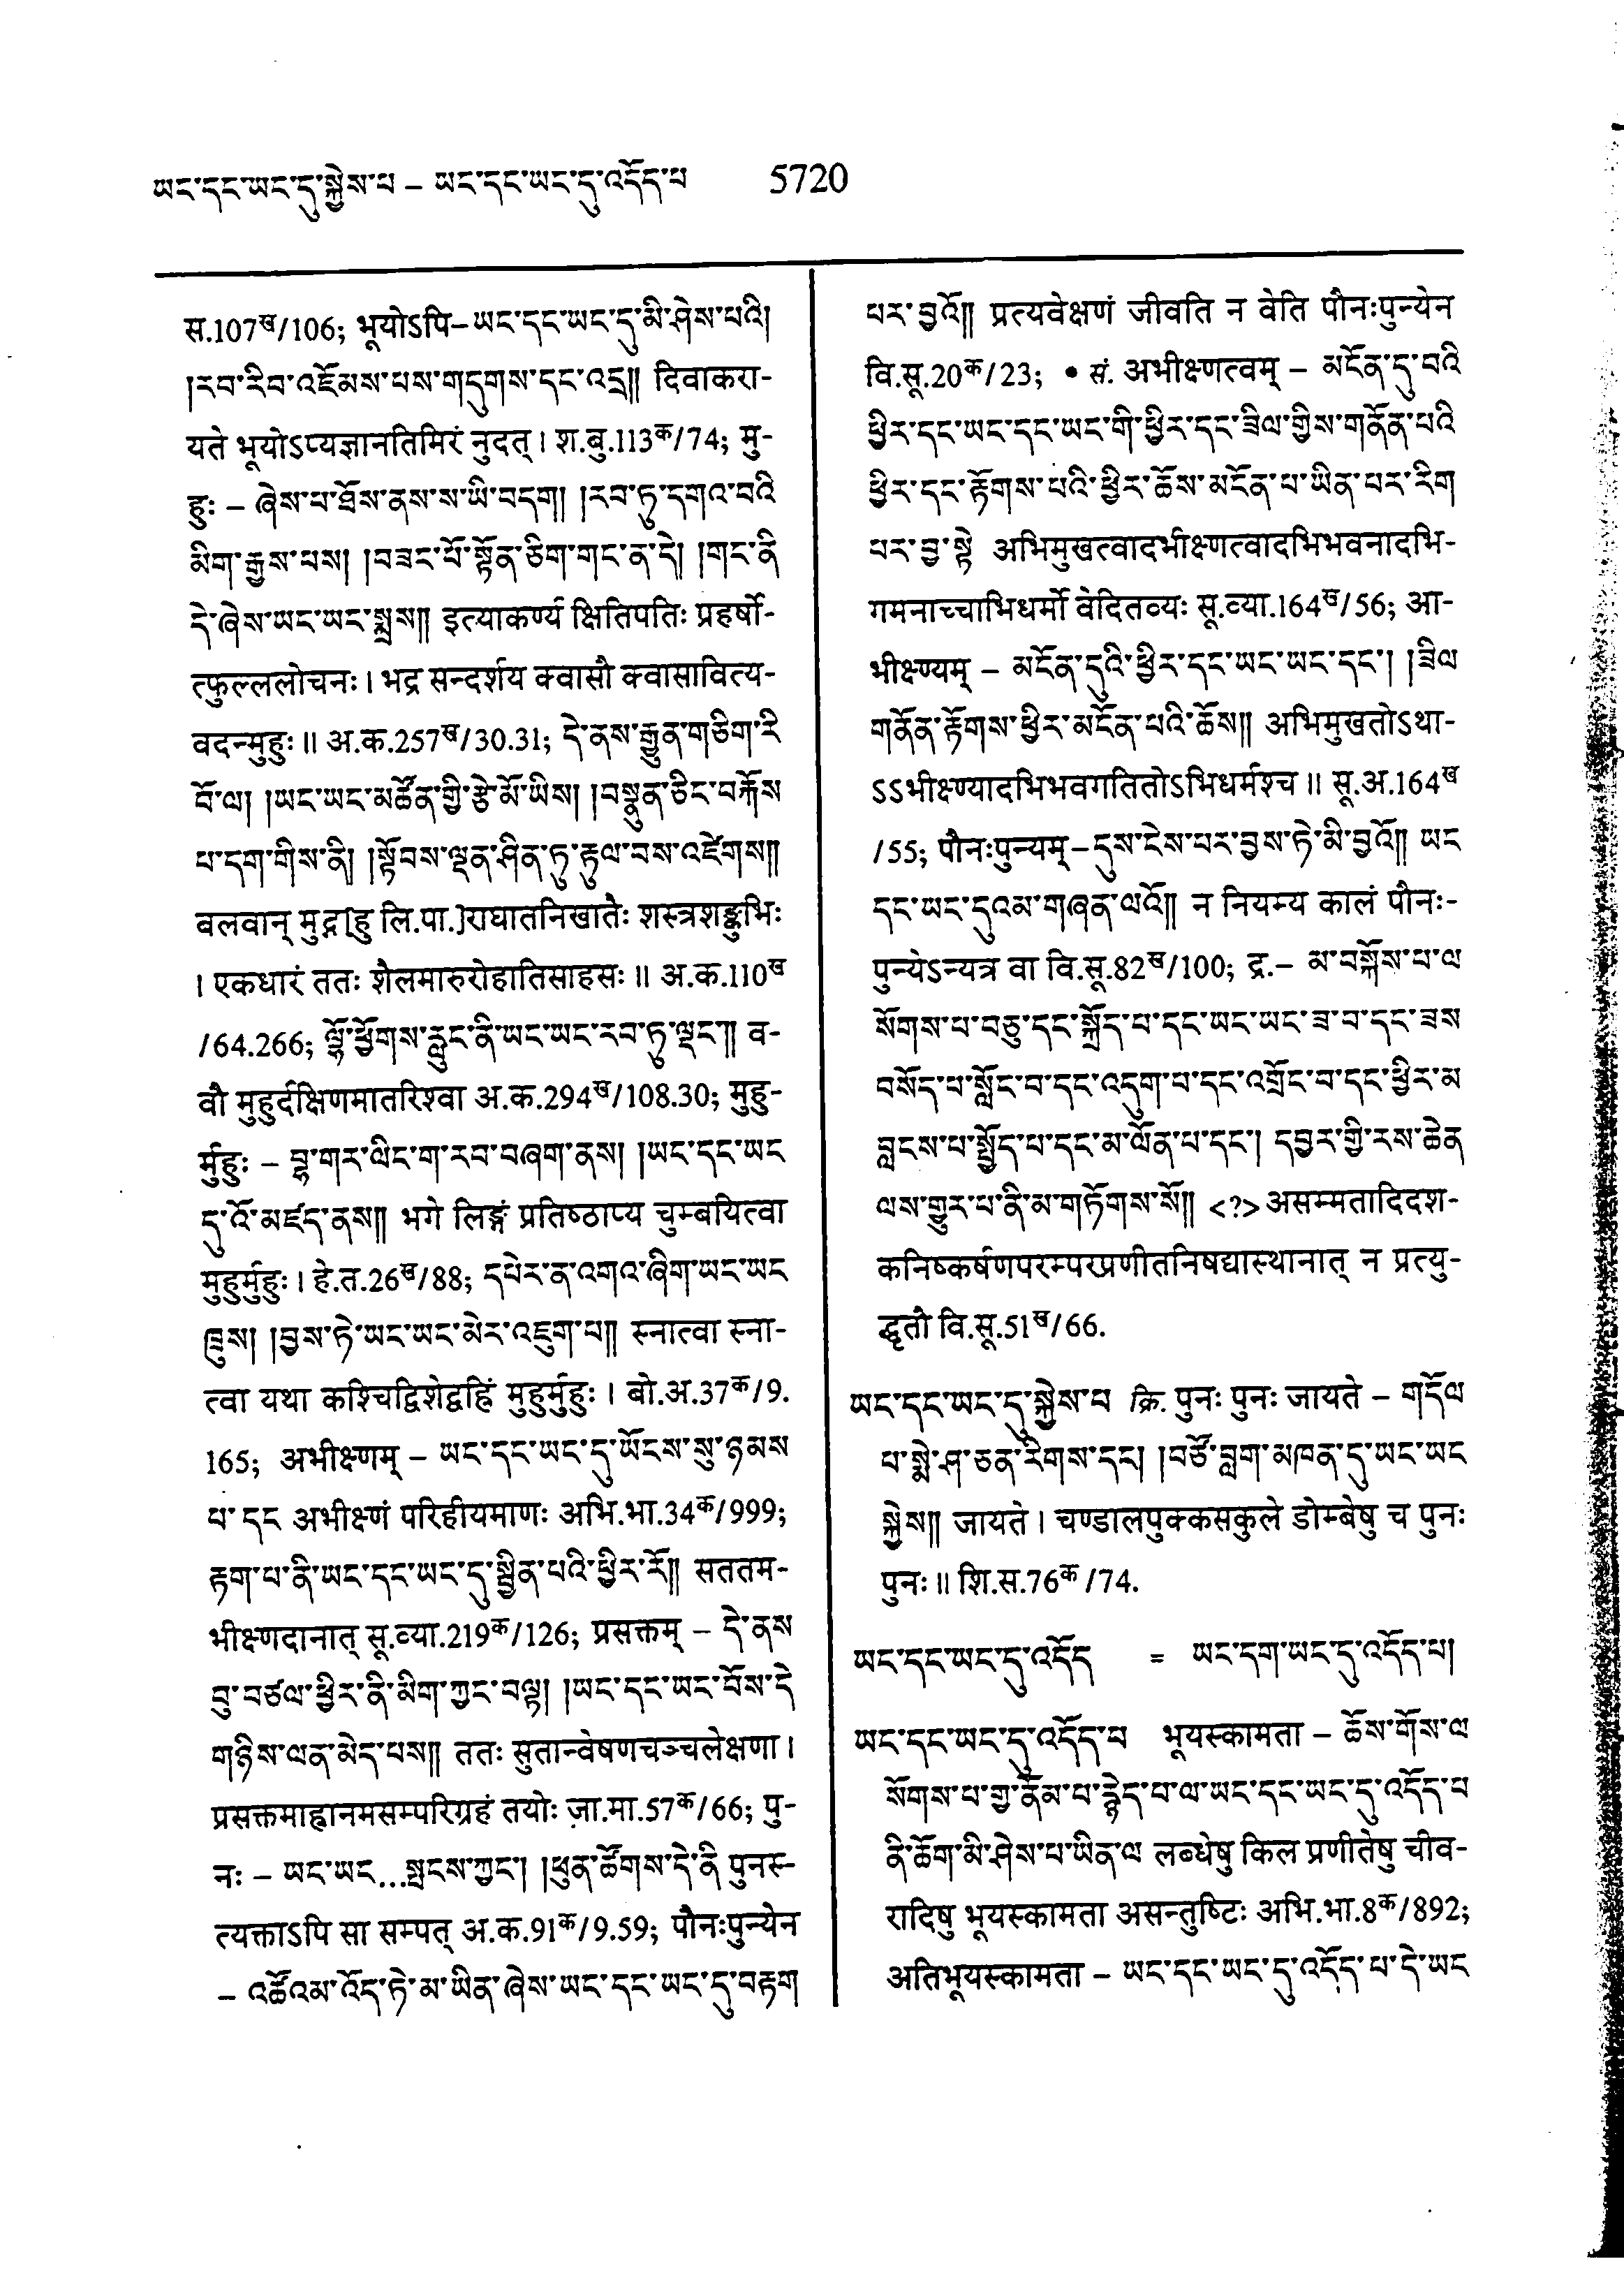 ཡང་དང་ཡང་དུ་སྐྱེས་པ – ཡང་དང་ཡང་དུ་འདོད་པ 5720
स.107ख/106; भूयोऽपि–ཡང་དང་ཡང་དུ་མི་ཤེས་པའི།
།རབ་རིབ་འཇོམས་པས་གདུགས་དང་འདྲ།། दिवाकरा-
यते भूयोऽप्यज्ञानतिमिरं नुदत् । श.बु.113क/74; मु-
हुः – ཞེས་པ་ཐོས་ནས་ས་ཡི་བདག། །རབ་ཏུ་དགའ་བའི
མིག་རྒྱས་པས། །བཟང་པོ་སྟོན་ཅིག་གང་ན་དེ། །གང་ནི
དེ་ཞེས་ཡང་ཡང་སྨྲས།། इत्याकर्ण्य क्षितिपतिः प्रहर्षो-
त्फुल्ललोचनः । भद्र सन्दर्शय क्वासौ क्वासावित्य-
वदन्मुहुः ॥ अ.क.257ख/30.31; དེ་ནས་རྒྱུན་གཅིག་རི
བོ་ལ། །ཡང་ཡང་མཚོན་གྱི་རྩེ་མོ་ཡིས། །བསྣུན་ཅིང་བརྐོས
པ་དག་གིས་ནི། །སྟོབས་ལྡན་ཤིན་ཏུ་རྟུལ་བས་འཛེགས།།
बलवान् मुद्ग[हु लि.पा.]राघातनिखातैः शस्त्रशङ्कुभिः
। एकधारं ततः शैलमारुरोहातिसाहसः ॥ अ.क.110ख
/64.266; ལྷོ་ཕྱོགས་རླུང་ནི་ཡང་ཡང་རབ་ཏུ་ལྡང་།། व-
वौ मुहुर्दक्षिणमातरिश्वा अ.क.294ख/108.30; मुहु-
र्मुहुः – བྷ་གར་ལིང་ག་རབ་བཞག་ནས། །ཡང་དང་ཡང
དུ་འོ་མཛད་ནས།། भगे लिङ्गं प्रतिष्ठाप्य चुम्बयित्वा
मुहुर्मुहुः । हे.त.26ख/88; དཔེར་ན་འགའ་ཞིག་ཡང་ཡང
ཁྲུས། །བྱས་ཏེ་ཡང་ཡང་མེར་འཇུག་པ།། स्नात्वा स्ना-
त्वा यथा कश्चिद्विशेद्वह्निं मुहुर्मुहुः । बो.अ.37क/9.
165; अभीक्ष्णम् – ཡང་དང་ཡང་དུ་ཡོངས་སུ་ཉམས
པ་ དང अभीक्ष्णं परिहीयमाणः अभि.भा.34क/999;
རྟག་པ་ནི་ཡང་དང་ཡང་དུ་སྦྱིན་པའི་ཕྱིར་རོ།། सततम-
भीक्ष्णदानात् सू.व्या.219क/126; प्रसक्तम् – དེ་ནས
བུ་བཙལ་ཕྱིར་ནི་མིག་ཀྱང་བལྟ། །ཡང་དང་ཡང་བོས་དེ
གཉིས་ལན་མེད་པས།། ततः सुतान्वेषणचञ्चलेक्षणा ।
प्रसक्तमाह्वानमसम्परिग्रहं तयोः जा.मा.57क/66; पु-
नः – ཡང་ཡང...སྤངས་ཀྱང་། །ཕུན་ཚོགས་དེ་ནི पुनस्-
त्यक्ताऽपि सा सम्पत् अ.क.91क/9.59; पौनःपुन्येन
– འཚོའམ་འོད་ཏེ་མ་ཡིན་ཞེས་ཡང་དང་ཡང་དུ་བརྟག
པར་བྱའོ།། प्रत्यवेक्षणं जीवति न वेति पौनःपुन्येन
वि.सू.20क/23; • सं. अभीक्ष्णत्वम् – མངོན་དུ་བའི
ཕྱིར་དང་ཡང་དང་ཡང་གི་ཕྱིར་དང་ཟིལ་གྱིས་གནོན་པའི
ཕྱིར་དང་རྟོགས་པའི་ཕྱིར་ཆོས་མངོན་པ་ཡིན་པར་རིག
པར་བྱ་སྟེ अभिमुखत्वादभीक्ष्णत्वादभिभवनादभि-
गमनाच्चाभिधर्मो वेदितव्यः सू.व्या.164ख/56; आ-
भीक्ष्ण्यम् – མངོན་དུའི་ཕྱིར་དང་ཡང་ཡང་དང་། །ཟིལ
གནོན་རྟོགས་ཕྱིར་མངོན་པའི་ཆོས།། अभिमुखतोऽथा-
ऽऽभीक्ष्ण्यादभिभवगतितोऽभिधर्मश्च ॥ सू.अ.164ख
/55; पौनःपुन्यम्–དུས་ངེས་པར་བྱས་ཏེ་མི་བྱའོ།། ཡང
དང་ཡང་དུའམ་གཞན་ལའོ།། न नियम्य कालं पौनः-
पुन्येऽन्यत्र वा वि.सू.82ख/100; द्र.– མ་བསྐོས་པ་ལ
སོགས་པ་བཅུ་དང་སྐྲོད་པ་དང་ཡང་ཡང་ཟ་བ་དང་ཟས
བསོད་པ་སློང་བ་དང་འདུག་པ་དང་འགྲོང་བ་དང་ཕྱིར་མ
བླངས་པ་སྤྱོད་པ་དང་མ་ལོན་པ་དང་། དབྱར་གྱི་རས་ཆེན
ལས་གྱུར་པ་ནི་མ་གཏོགས་སོ།། <?> असम्मतादिदश-
कनिष्कर्षणपरम्परप्रणीतनिषद्यास्थानात् न प्रत्यु-
द्धृतौ वि.सू.51ख/66.
ཡང་དང་ཡང་དུ་སྐྱེས་པ क्रि. पुनः पुनः जायते – གདོལ
པ་སྨེ་ཤ་ཅན་རིགས་དང། །བཙོ་བླག་མཁན་དུ་ཡང་ཡང
སྐྱེས།། जायते । चण्डालपुक्कसकुले डोम्बेषु च पुनः
पुनः ॥ शि.स.76क /74.
ཡང་དང་ཡང་དུ་འདོད = ཡང་དག་ཡང་དུ་འདོད་པ།
ཡང་དང་ཡང་དུ་འདོད་པ भूयस्कामता – ཆོས་གོས་ལ
སོགས་པ་གྱ་ནོམ་པ་རྙེད་པ་ལ་ཡང་དང་ཡང་དུ་འདོད་པ
ནི་ཆོག་མི་ཤེས་པ་ཡིན་ལ लब्धेषु किल प्रणीतेषु चीव-
रादिषु भूयस्कामता असन्तुष्टिः अभि.भा.8क/892;
अतिभूयस्कामता – ཡང་དང་ཡང་དུ་འདོད་པ་དེ་ཡང